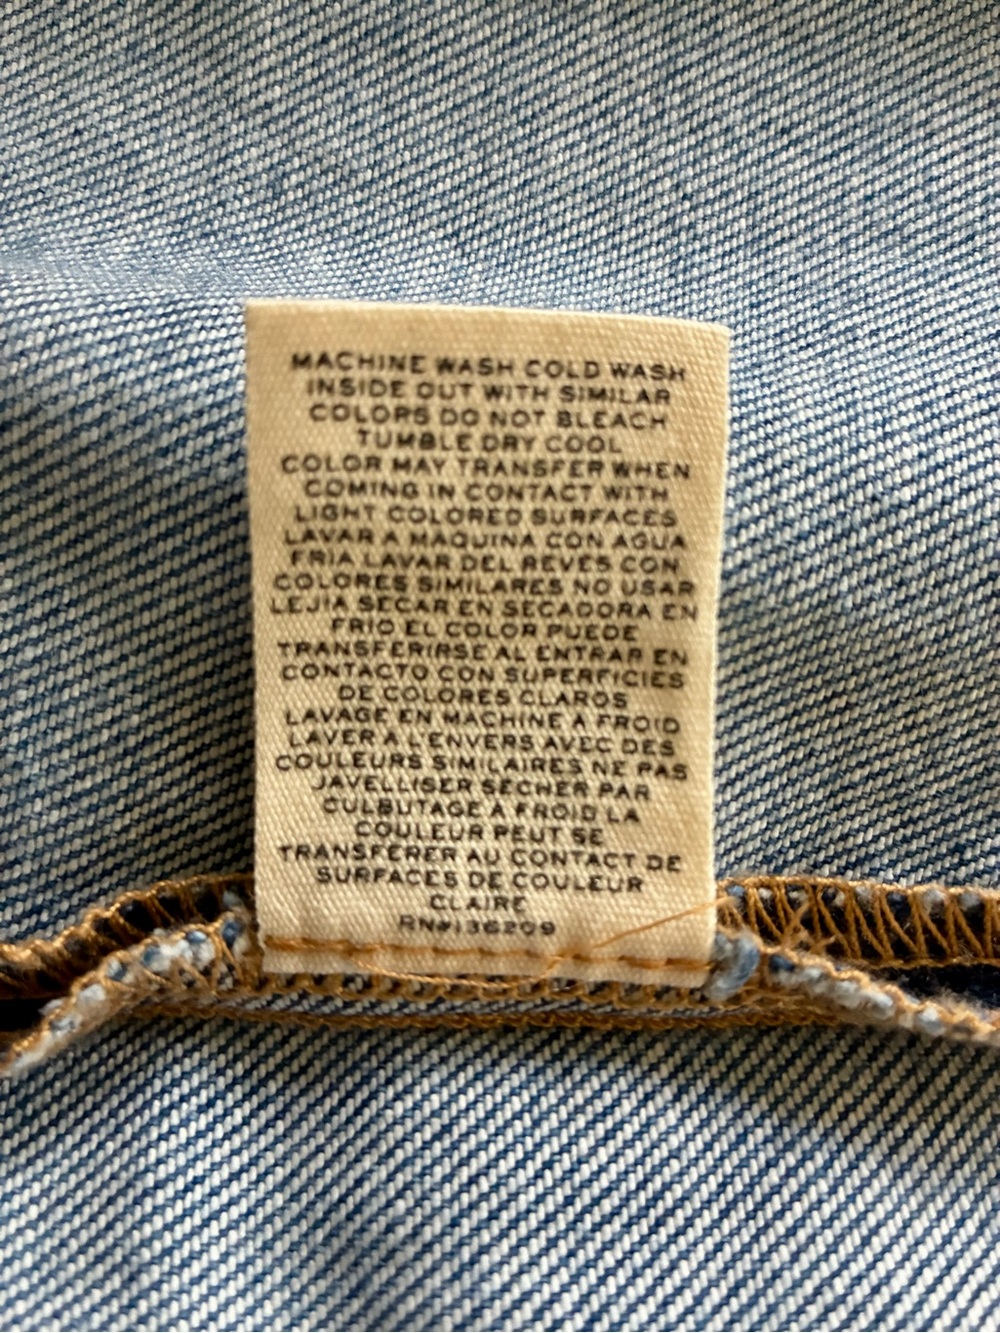 MACHINE WASH COLD WASH
INSIDE OUT WITH SIMILAR
COLORS DO NOT BLEACH
TUMBLE DRY COOL
COLOR MAY TRANSFER WHEN
COMING IN CONTACT WITH
LIGHT COLORED SURFACES
LAVAR A MAQUINA CON AGUA
FRIA LAVAR DEL REVES CON
COLORES SIMILARES NO USAR
LEJIA SECAR EN SECADORA EN
FRIO EL COLOR PUEDE
TRANSFERIRSE AL ENTRAR EN
CONTACTO CON SUPERFICIES
DE COLORES CLAROS
LAVAGE EN MACHINE A FROID
LAVER A L'ENVERS AVEC DES
COULEURS SIMILAIRES NE PAS
JAVELLISER SECHER PAR
CULBUTAGE A FROID LA
COULEUR PEUT SE
TRANSFERER AU CONTACT DE
SURFACES DE COULEUR
CLAIRE
RN#136209